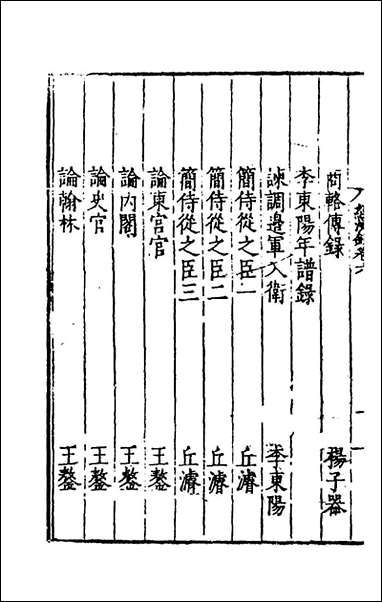 商輅傳錄　楊子器
李東陽年譜錄
諫調邊軍入衛　李東陽
簡侍從之臣一　丘濬
簡侍從之臣二　丘濬
簡侍從之臣三　丘濬
論東宮官　王鏊
論內閣　王鏊
論史官　王鏊
論翰林　王鏊